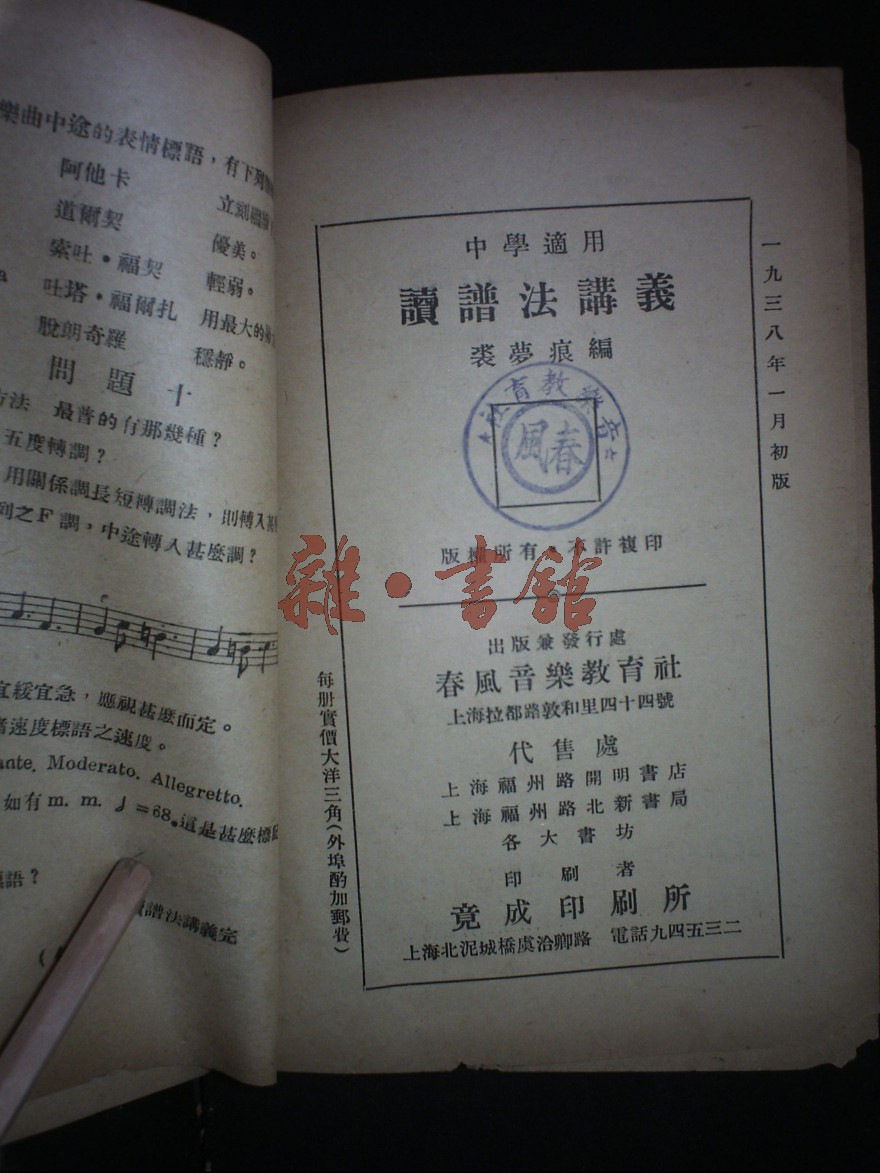 樂曲中途的表情標語，有下列
阿他卡 立刻
道爾契 優美。
索吐·福契 輕弱。
吐塔·福爾扎 用最大的
脫朗奇羅 穩靜。
問題十
方法 最普的有那幾種？
五度轉調？
用關係調長短轉調法，則轉入甚
到之F調，中途轉入甚麼調？
宜緩宜急，應視甚麼而定。
者速度標語之速度。
ante. Moderato. Allegretto.
如有m. m. ♩=68。這是甚麼標
語？
讀譜法講義完
一九三八年一月初版
中學適用
讀譜法講義
裘夢痕編
春風音樂教育社
版權所有·不許複印
雜·書館
出版兼發行處
春風音樂教育社
上海拉都路敦和里四十四號
代售處
上海福州路開明書店
上海福州路北新書局
各大書坊
印刷者
竟成印刷所
上海北泥城橋虞洽卿路 電話九四五三二
每册實價大洋三角(外埠酌加郵費)